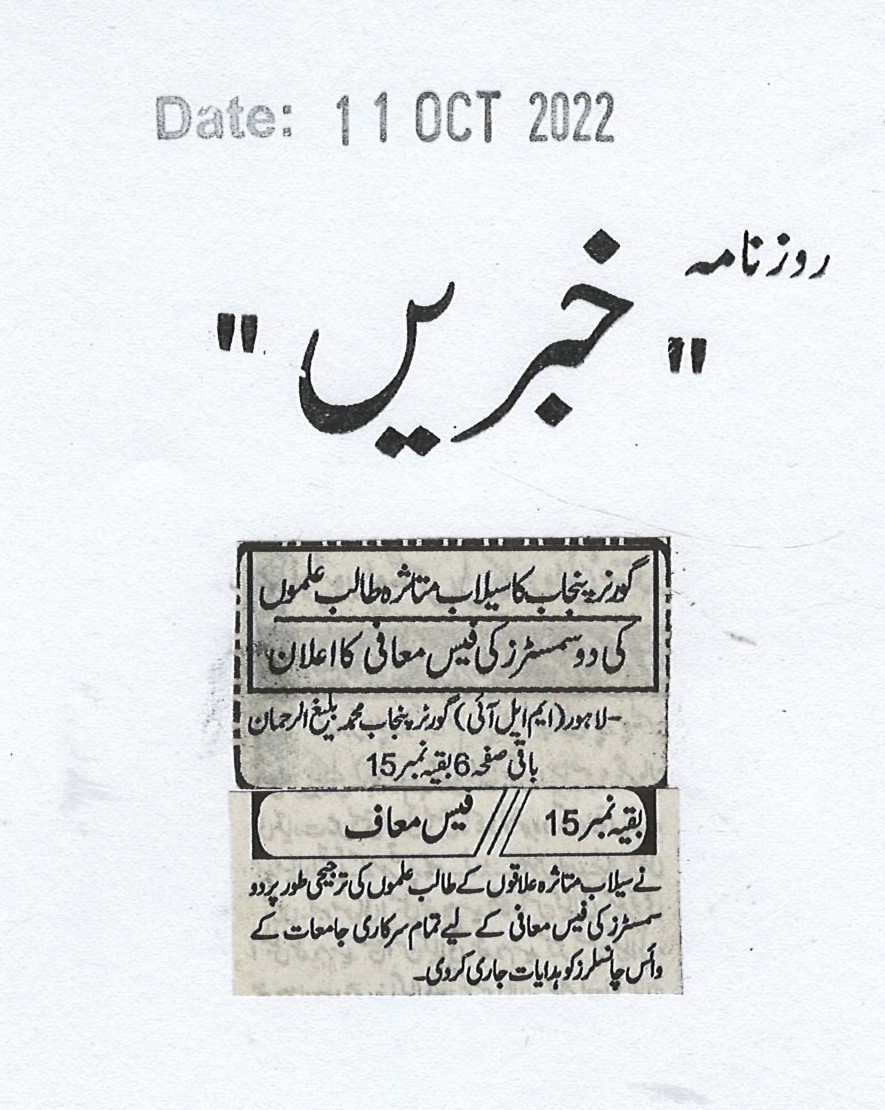 Date: 11 OCT 2022
روزنامہ
"خبریں"
گورنر پنجاب کا سیلاب متاثرہ طالب علموں
کی دو سمسٹرز کی فیس معافی کا اعلان
لاہور (ایم ایل آئی) گورنر پنجاب محمد بلیغ الرحمان
باقی صفحہ 6 بقیہ نمبر 15
بقیہ نمبر 15 /// فیس معاف
نے سیلاب متاثرہ علاقوں کے طالب علموں کی ترجیحی طور پر دو
سمسٹرز کی فیس معافی کے لیے تمام سرکاری جامعات کے
وائس چانسلرز کو ہدایات جاری کر دی۔